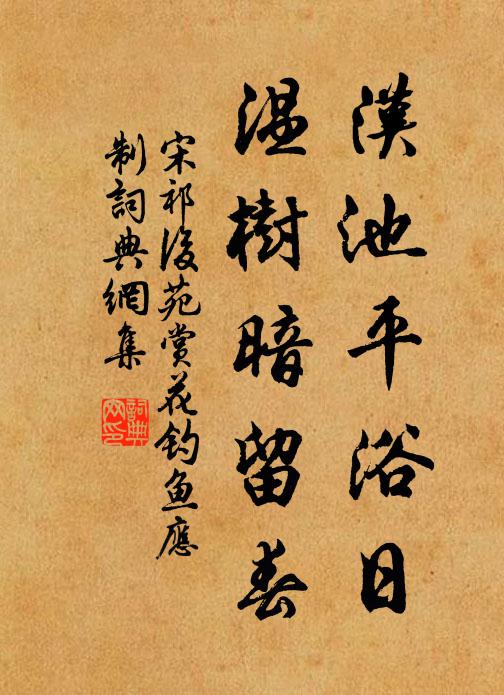 漢池平浴日
温樹暗留春
宋祁後苑賞花钓鱼應
制詞典網集
詞典
网印